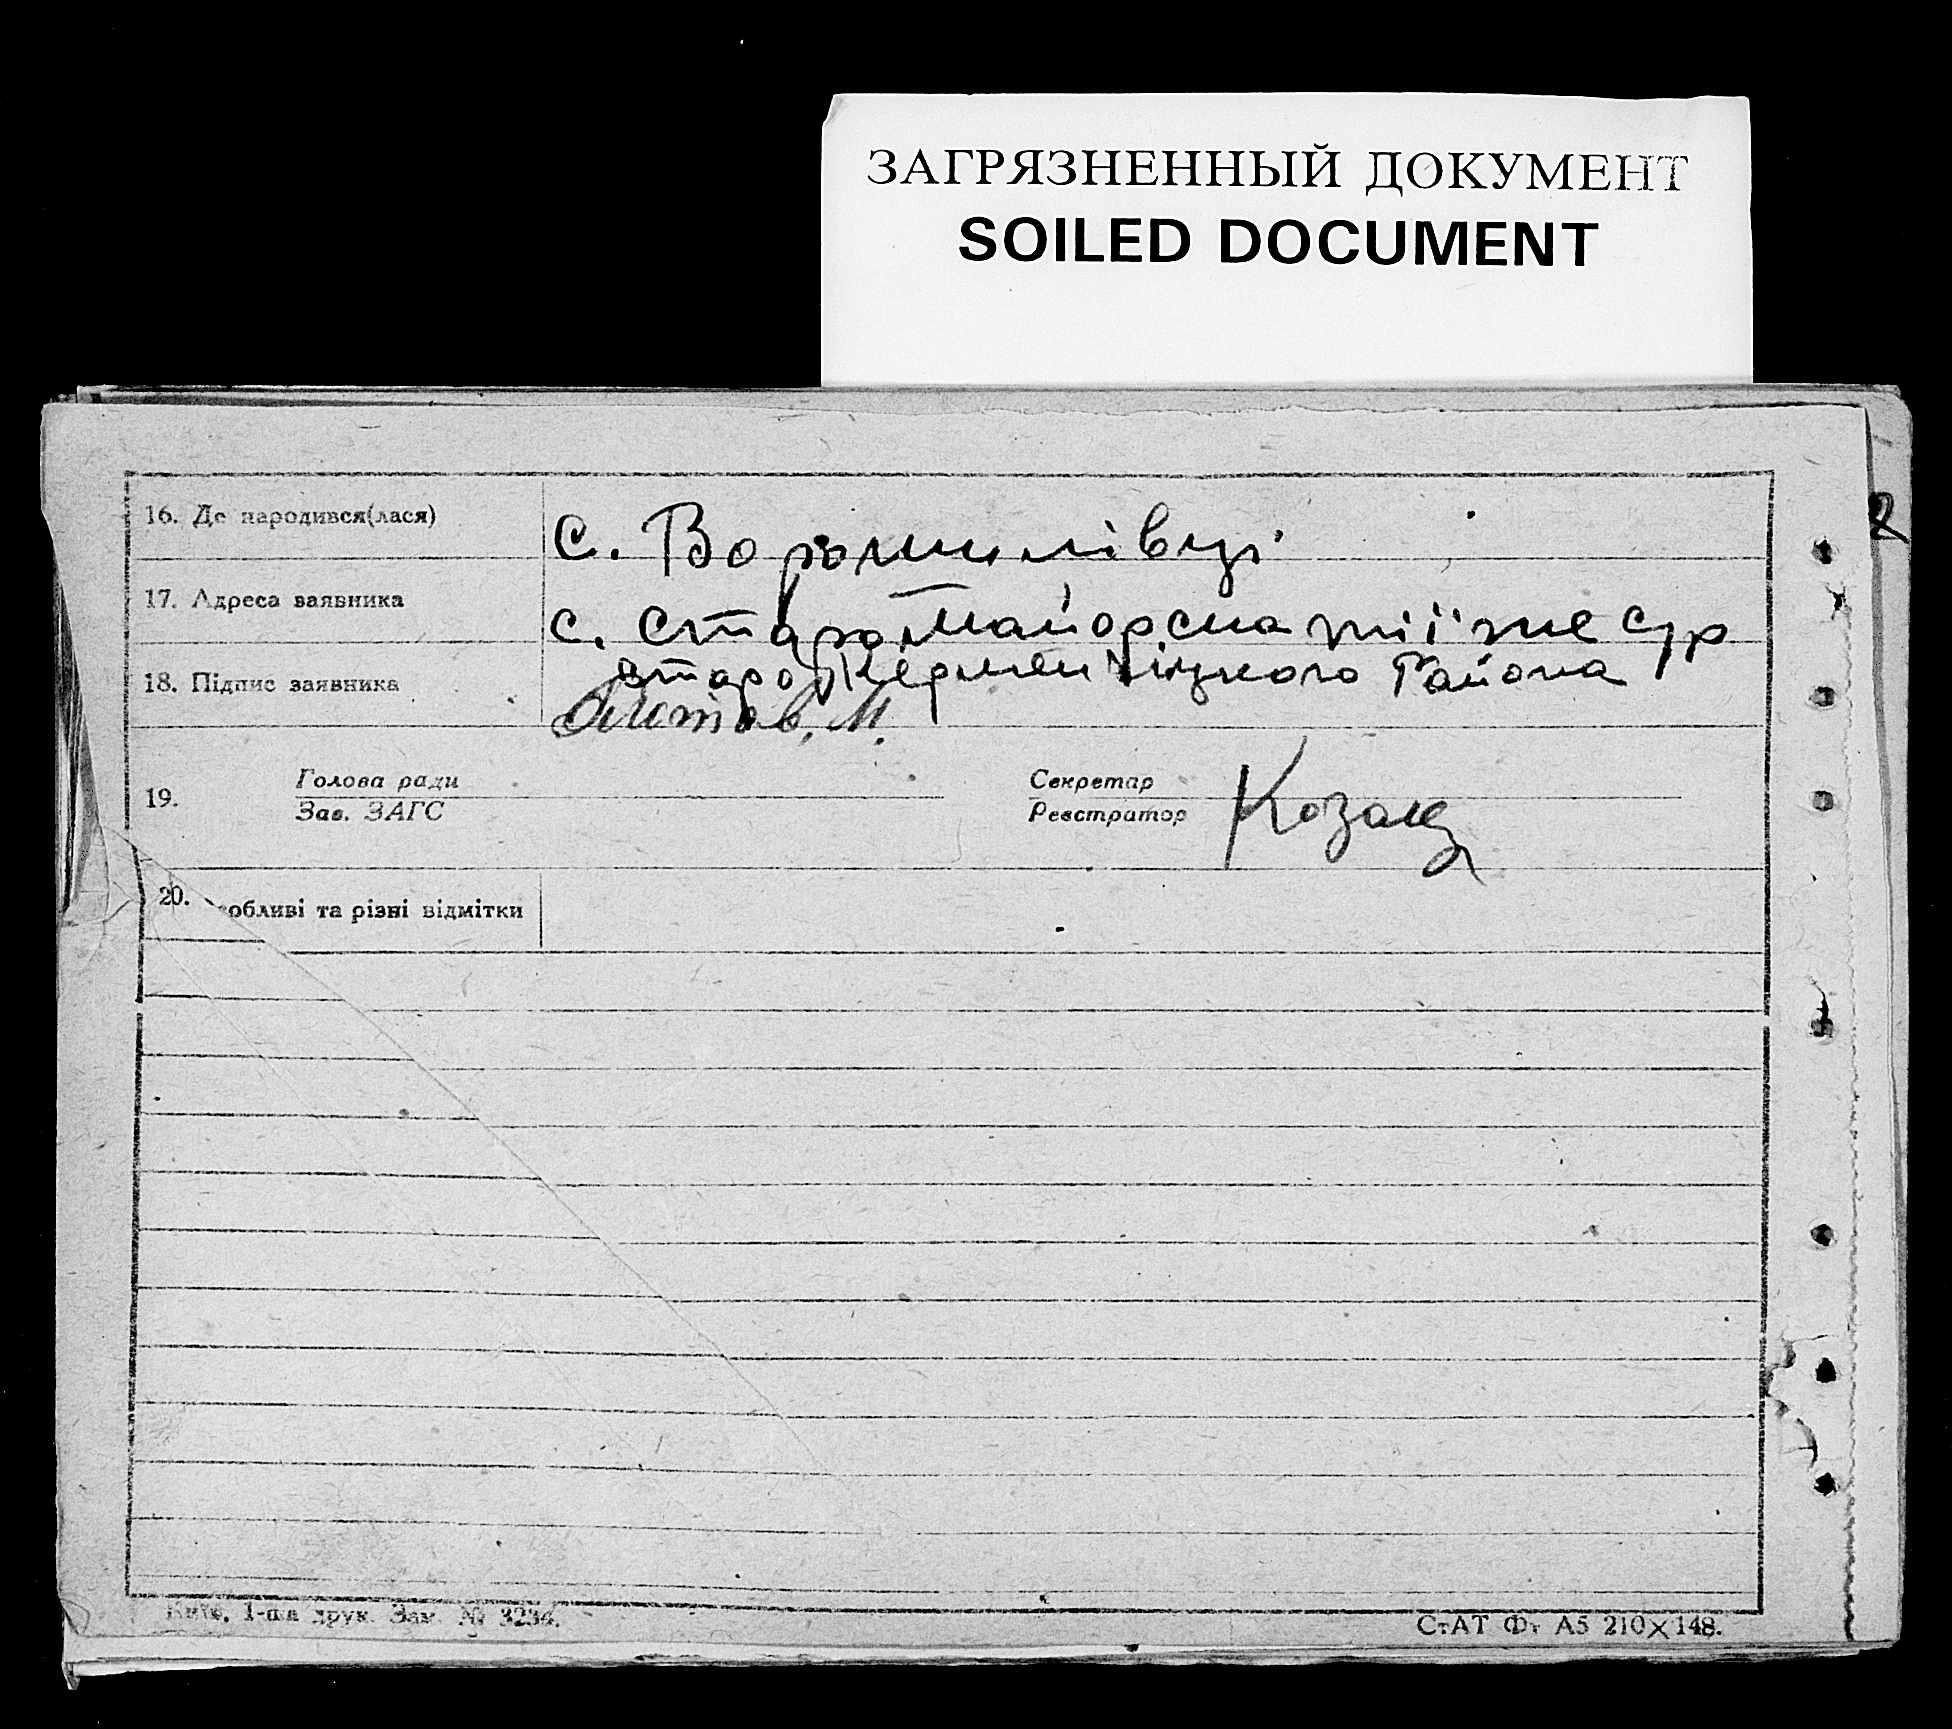 ЗАГРЯЗНЕННЫЙ ДОКУМЕНТ
SOILED DOCUMENT
2
16. Де народився(лася)
с. Ворошилівці
17. Адреса заявника
с. Старомайорска сур
18. Підпис заявника
Району
М.
19. Голова ради
Зав. ЗАГС
Секретар
Реєстратор
Козак
20. обливі та різні відмітки
Київ, 1-ша друк. Зам. № 3234.
СтАТ Фт А5 210×148.